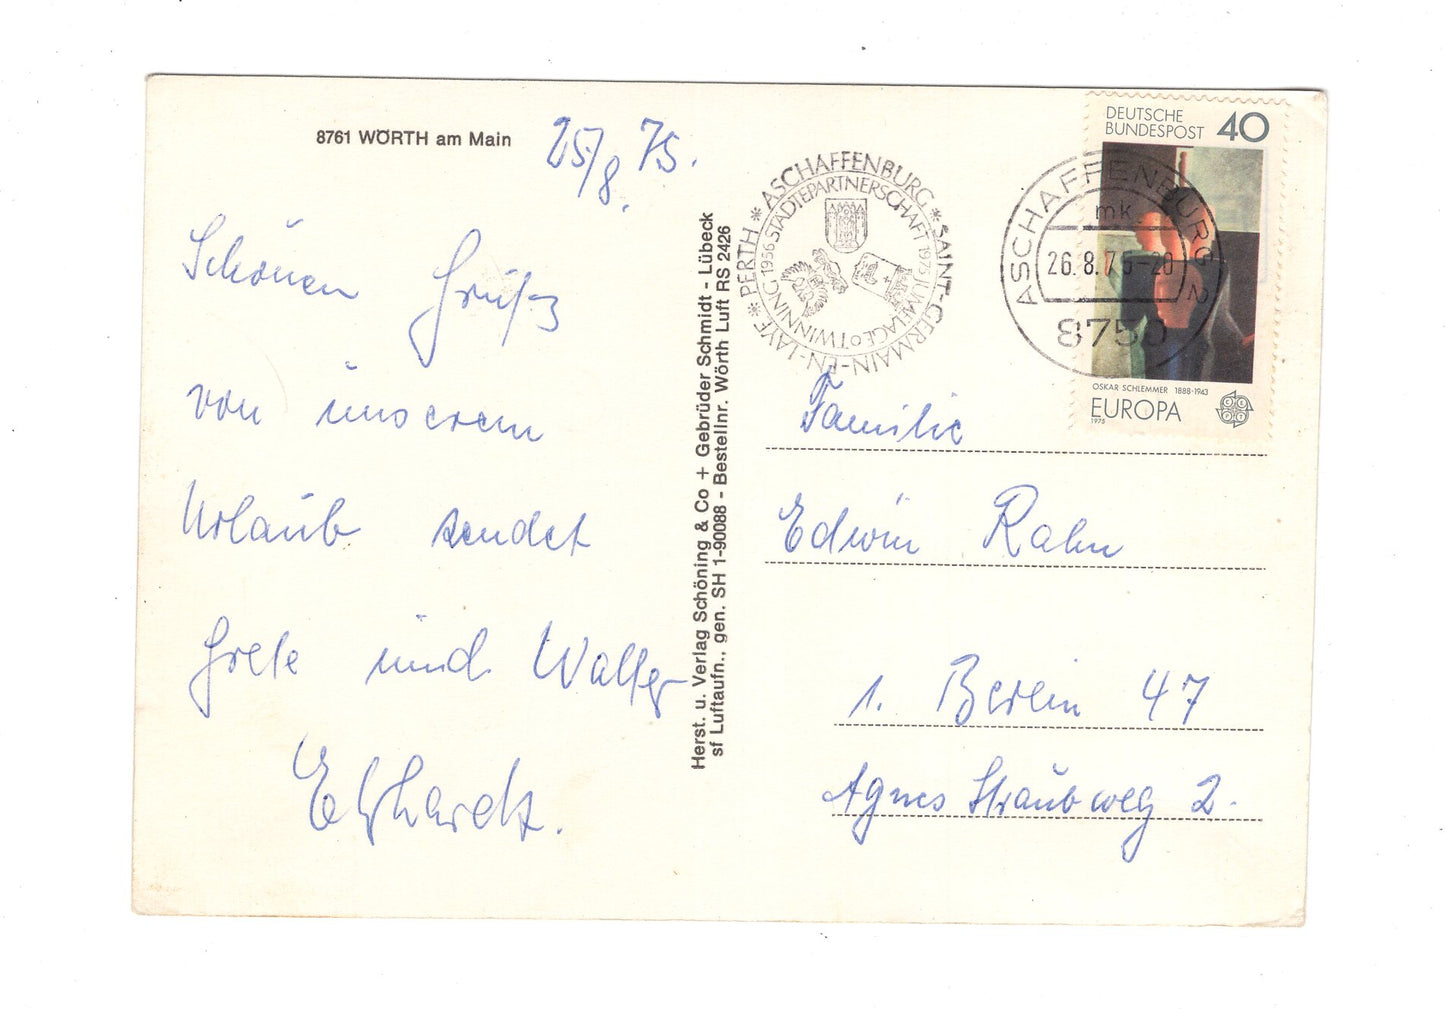 8761 WÖRTH am Main
25/8. 75.
Schönen Gruß
von unserem
Urlaub sendet
Grete und Walter
Ephardt.
Herst. u. Verlag Schöning & Co + Gebrüder Schmidt - Lübeck
sf Luftaufn., gen. SH 1-90088 - Bestellnr. Wörth Luft RS 2426
* PERTH * ASCHAFFENBURG * SAINT-GERMAIN-EN-LAYE
1956 STÄDTEPARTNERSCHAFT 1975 JUMELAGE o TWINNING
ASCHAFFENBURG 2
mk
26.8.75-20
8750
DEUTSCHE
BUNDESPOST 40
OSKAR SCHLEMMER 1888-1943
EUROPA
1975
CEPT
Familie
Edwin Rahn
1. Berlin 47
Agnes Straubweg 2.